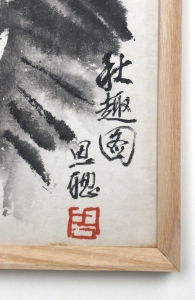 秋趣图
思聪